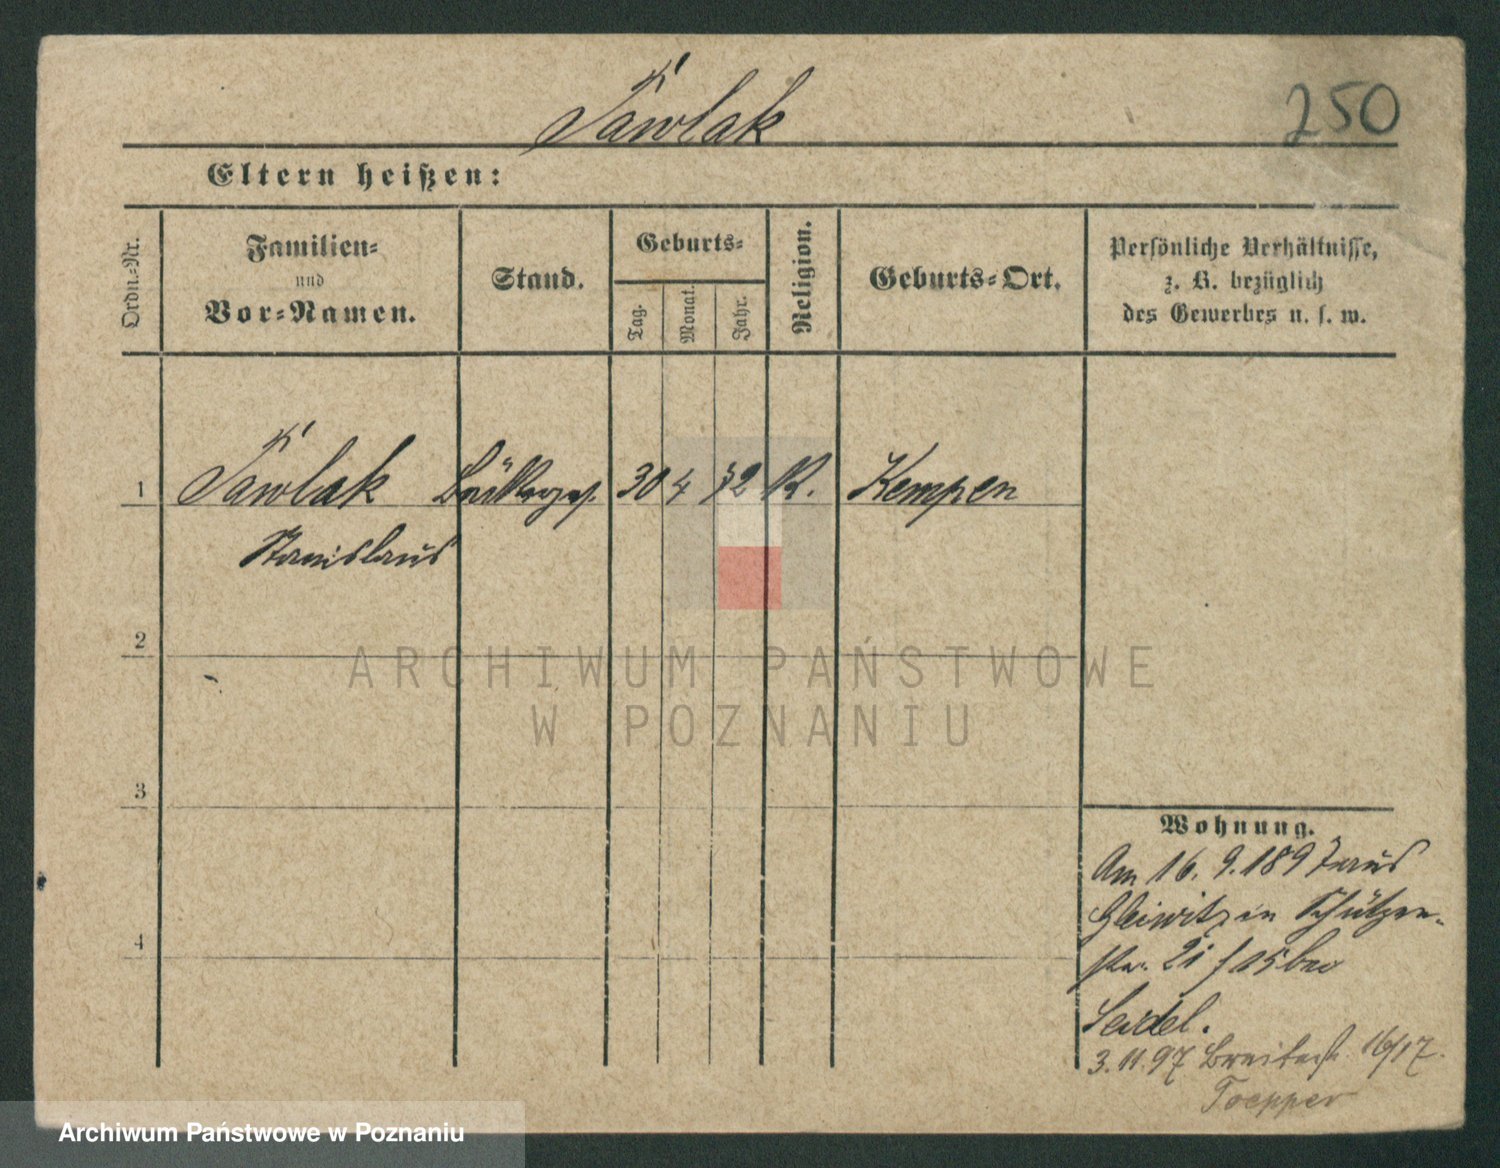 Pawlak
250
Eltern heißen:
Ordn.-Nr.
Familien-
und
Vor-Namen.
Stand.
Geburts-
Tag.
Monat.
Jahr.
Religion.
Geburts-Ort.
Persönliche Verhältnisse,
z. B. bezüglich
des Gewerbes u. s. w.
1 Pawlak Bäckerges. 30 4 72 K. Kempen
Stanislaus
2
ARCHIWUM PAŃSTWOWE
W POZNANIU
3
Wohnung.
Am 16. 9. 1897 aus
Gleiwitz in Schützen-
4
str. 21 / 25 bei
Seidel.
3. 11. 97 Breitestr. 16/17.
Toepper
Archiwum Państwowe w Poznaniu